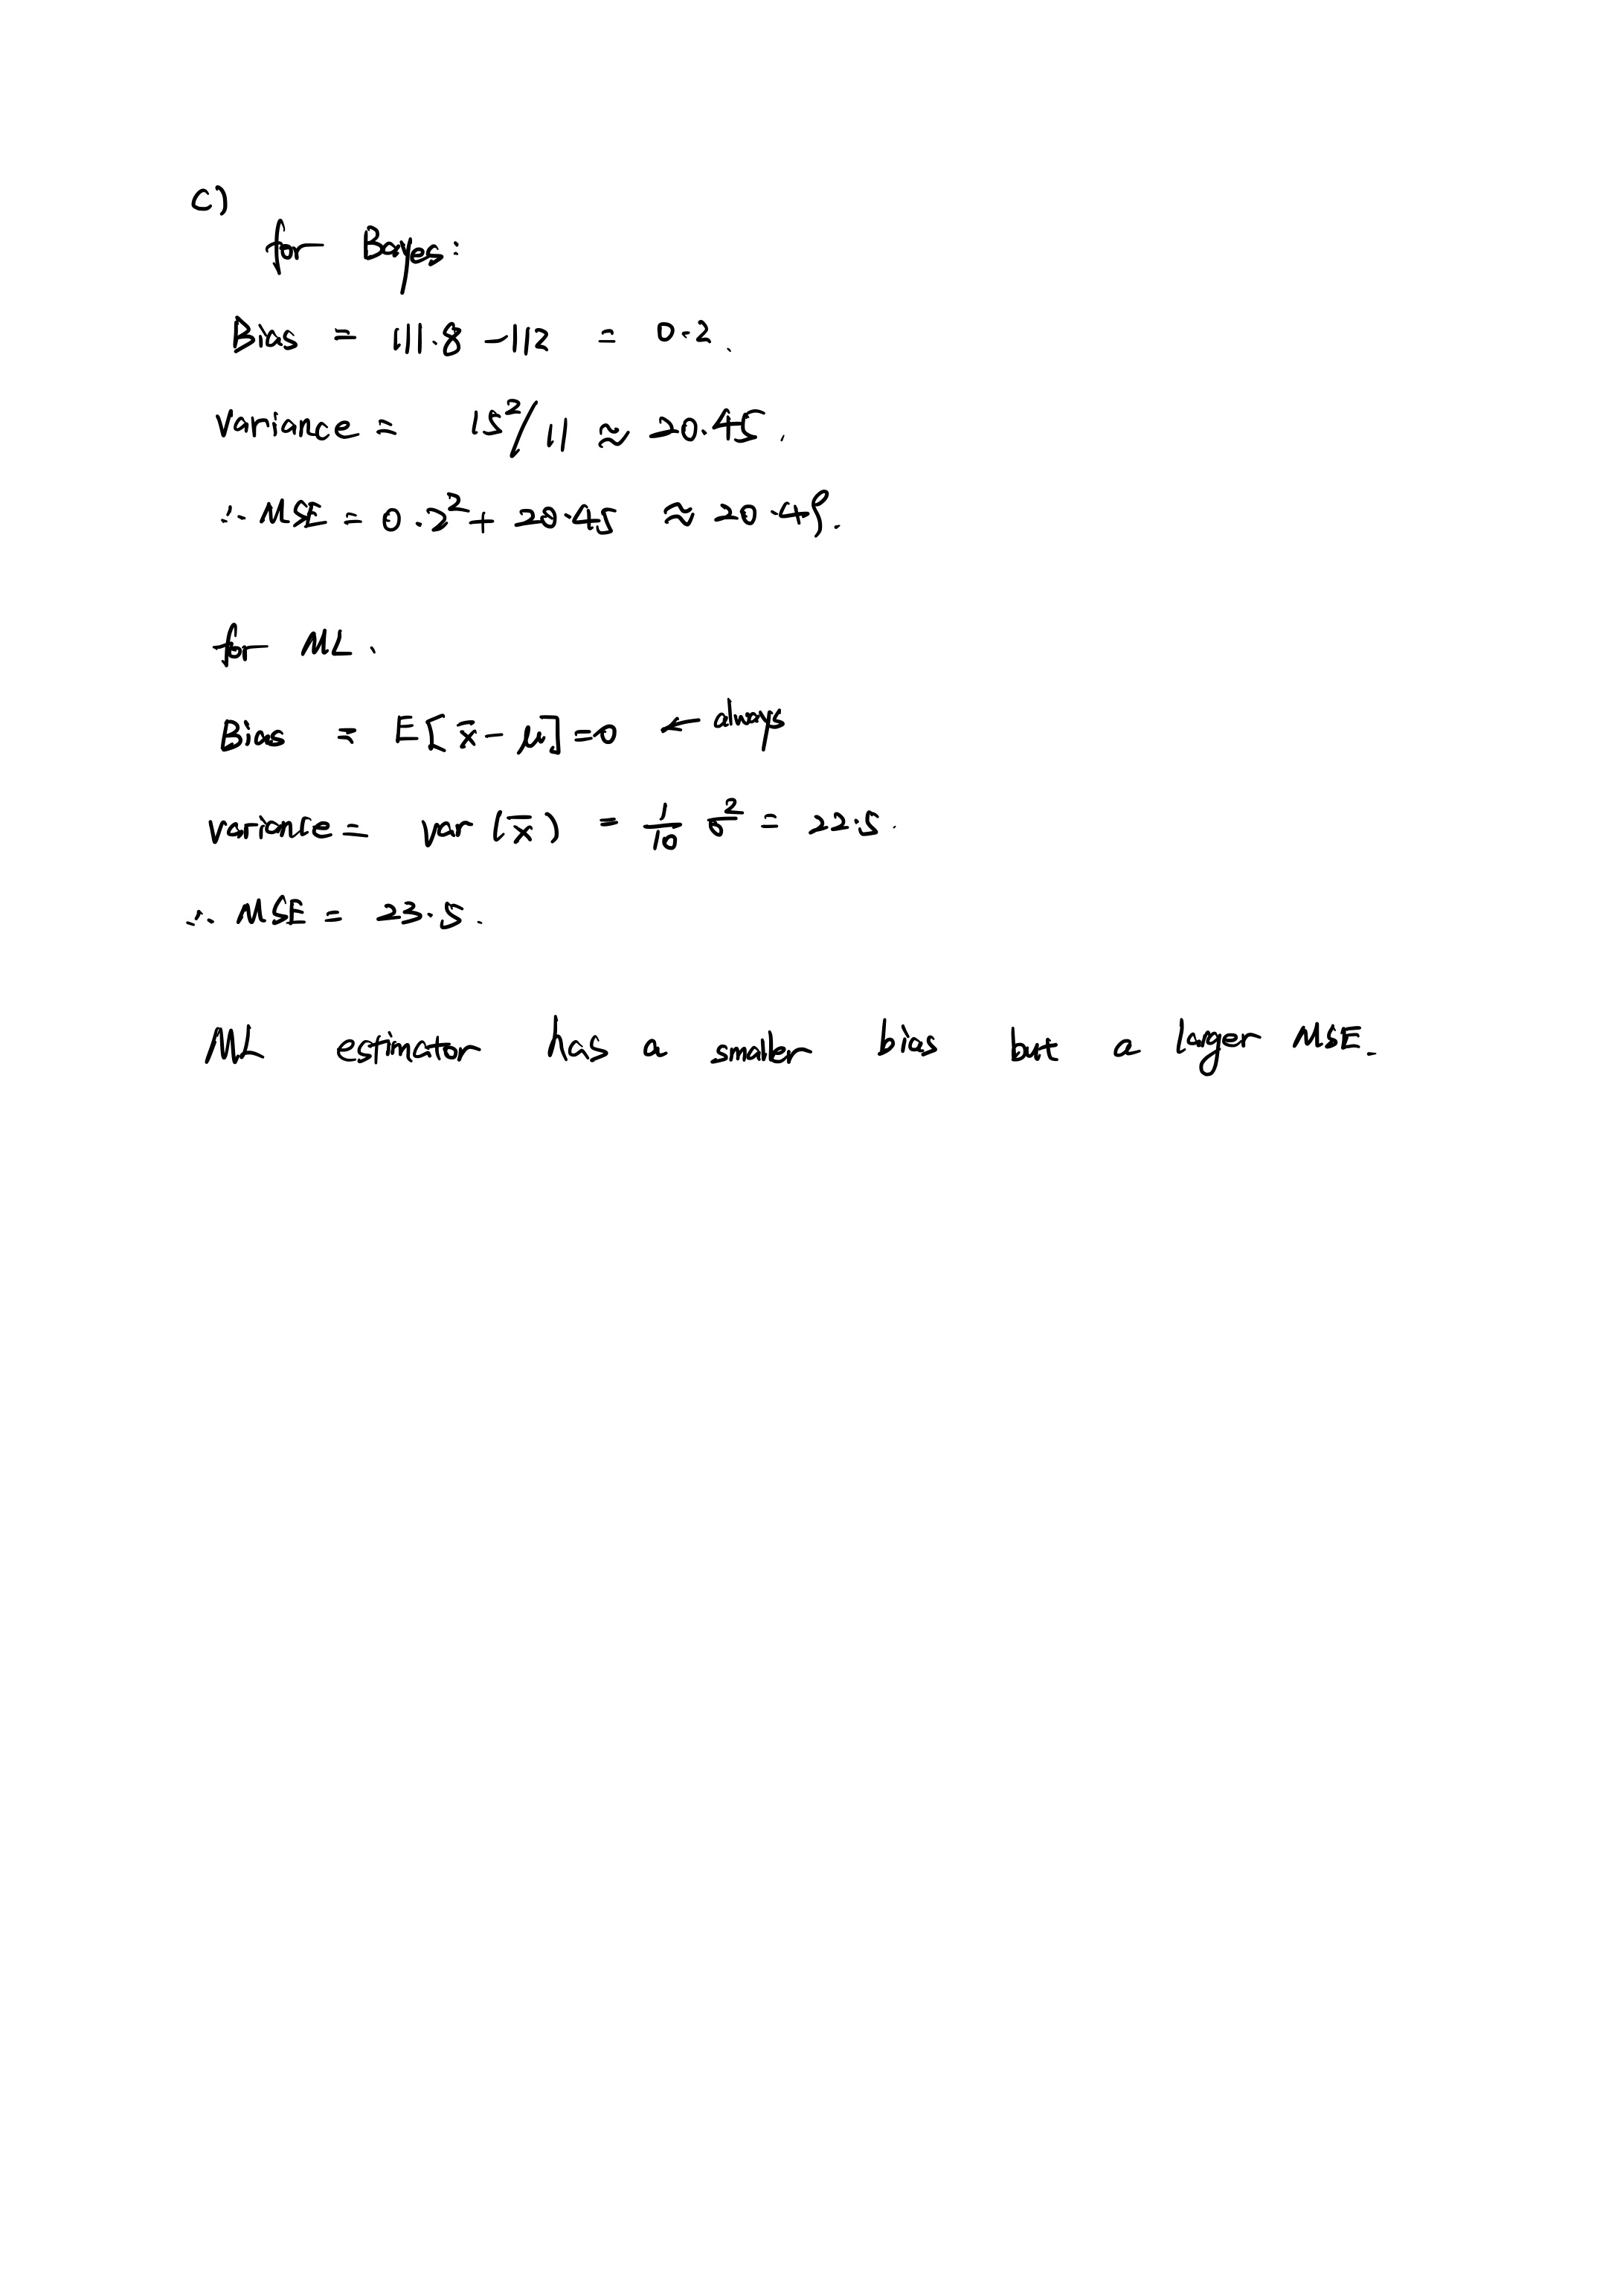 c)
for Bayes:
Bias = 111.8 - 112 = 0.2.
Variance = 15²/11 ≈ 20.45.
∴ MSE = 0.2² + 20.45 ≈ 20.49.
for ML.
Bias = E[x̄ - μ] = 0 ← always
variance = var(x̄) = 1/10 σ² = 22.5.
∴ MSE = 23.5.
ML estimator has a smaller bias but a larger MSE.